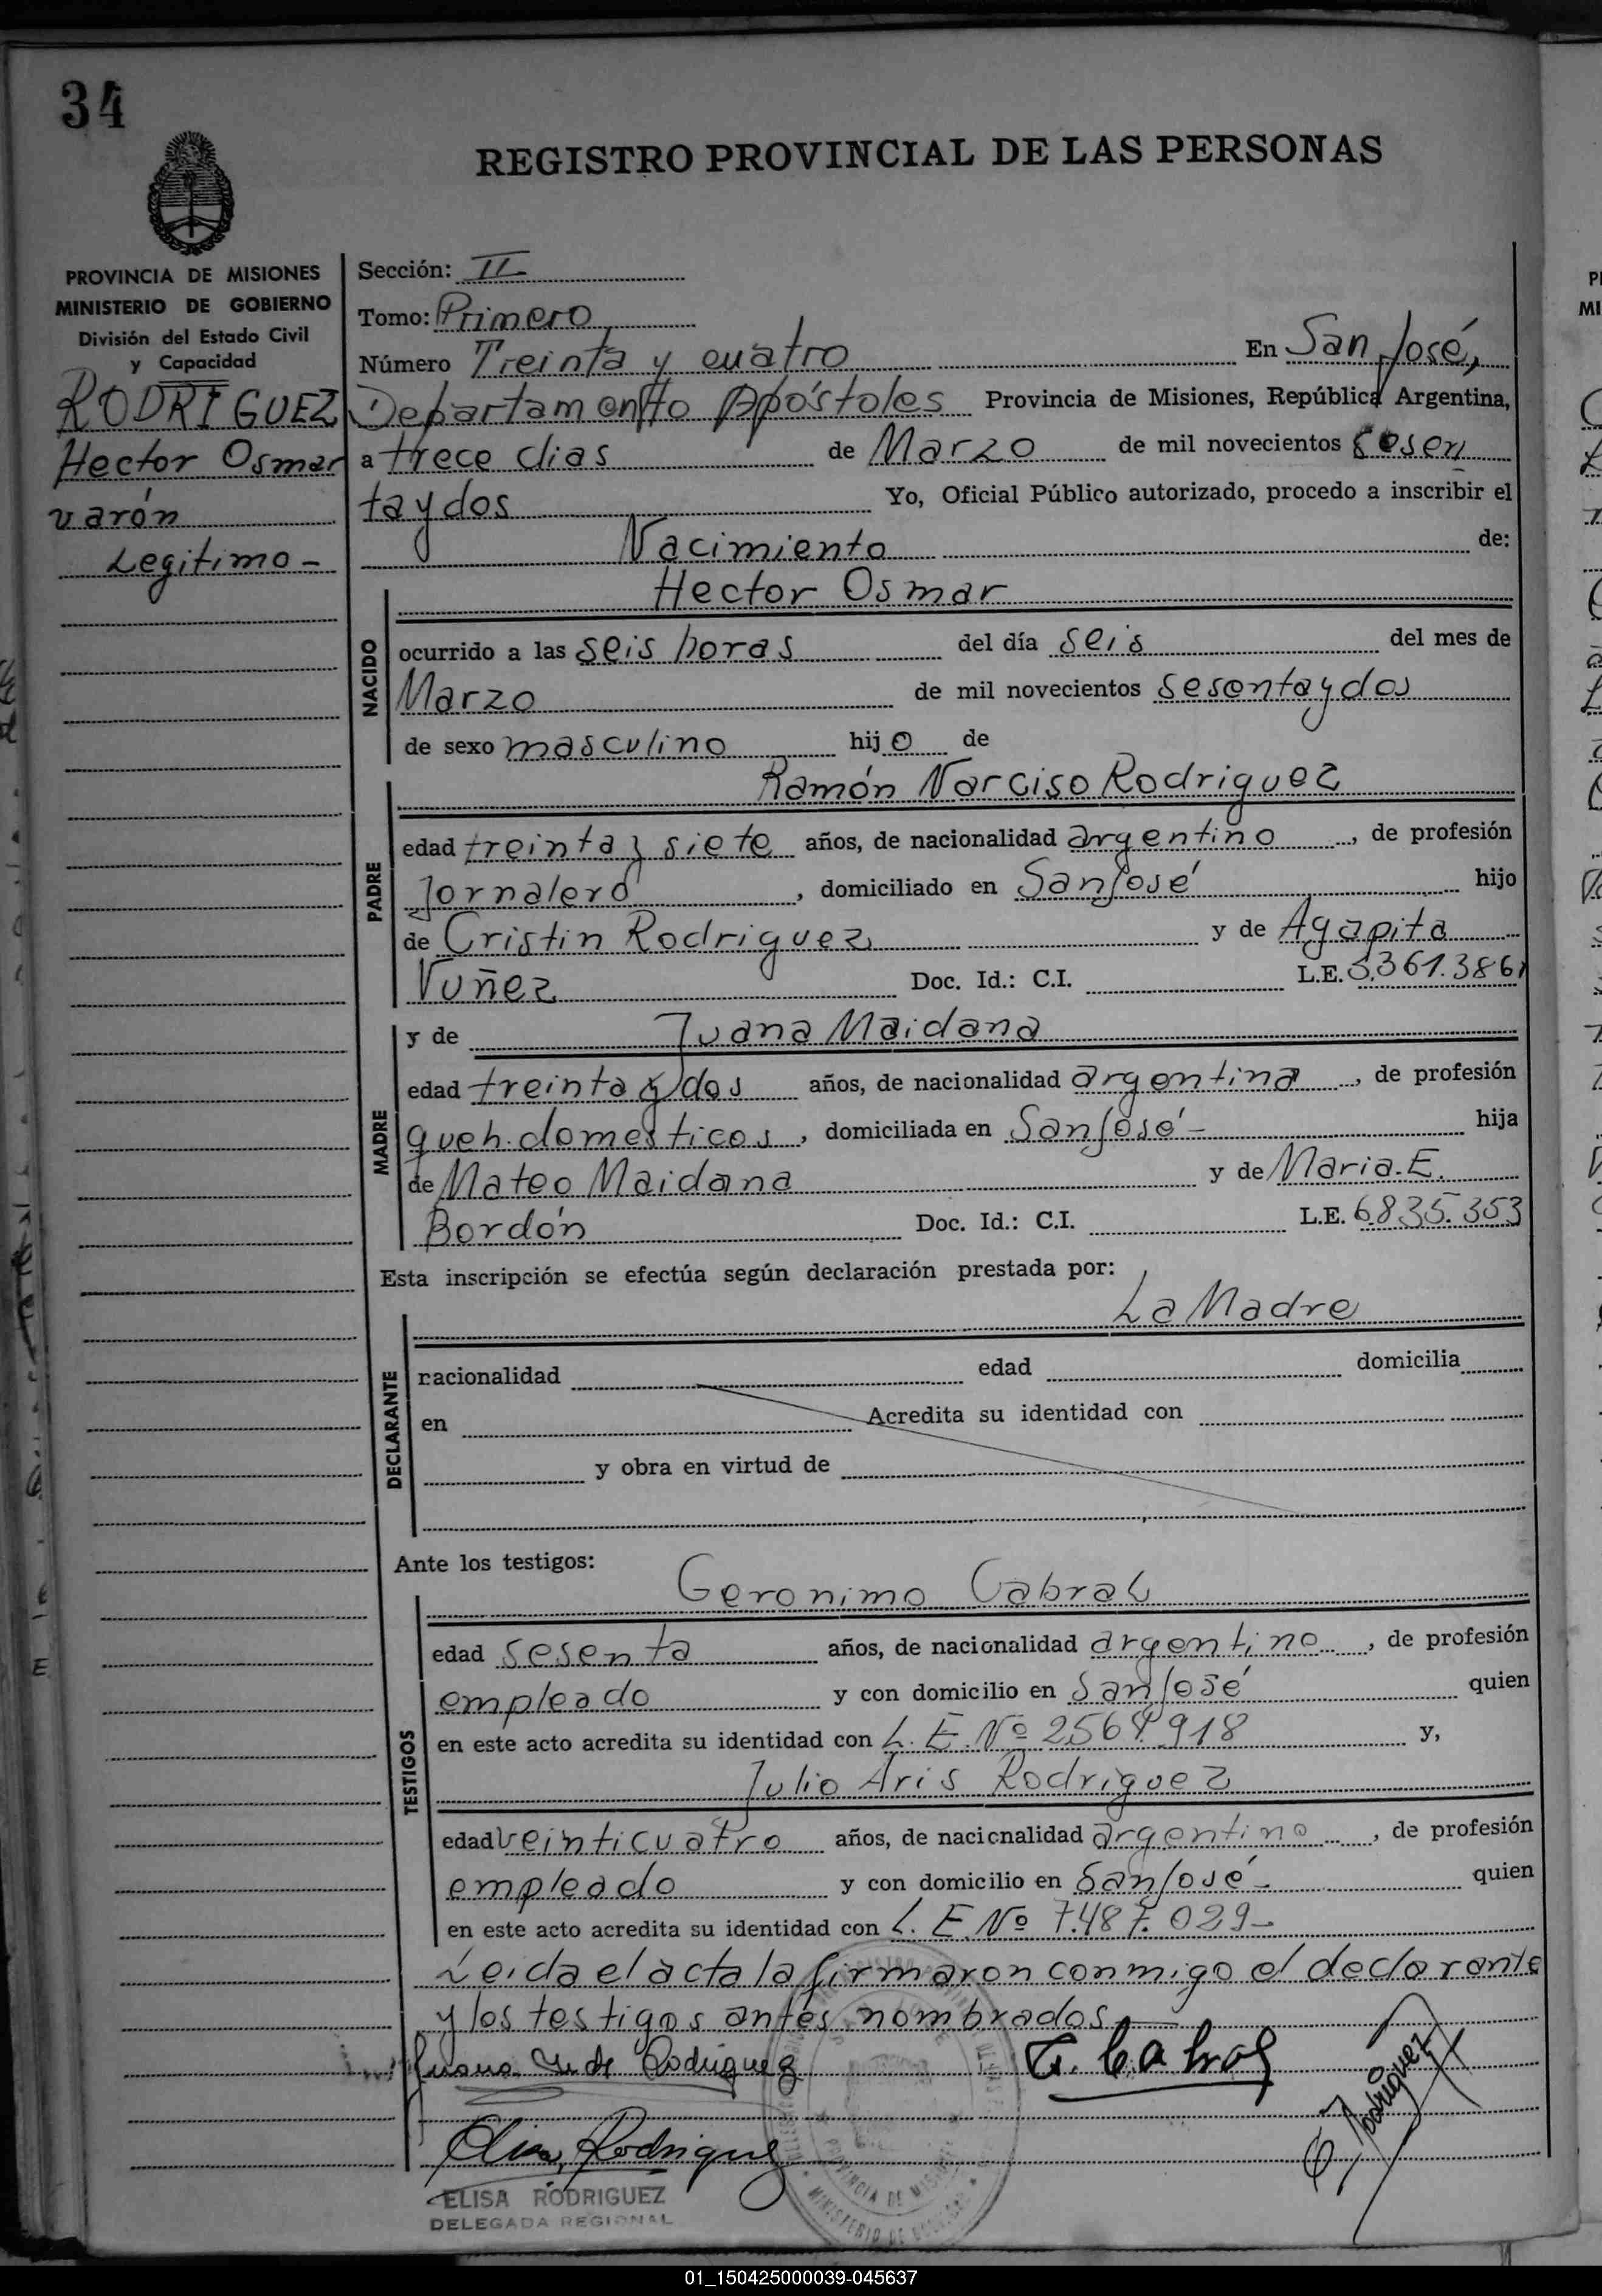 34
REGISTRO PROVINCIAL DE LAS PERSONAS
PROVINCIA DE MISIONES
MINISTERIO DE GOBIERNO
División del Estado Civil
y Capacidad
RODRIGUEZ
Hector Osmar
varón
Legitimo -
Sección: II
Tomo: Primero
Número Treinta y cuatro En San José,
Departamento Apóstoles Provincia de Misiones, República Argentina,
a trece dias de Marzo de mil novecientos sesen
ta y dos Yo, Oficial Público autorizado, procedo a inscribir el
Nacimiento de:
Hector Osmar
NACIDO
ocurrido a las seis horas del día seis del mes de
Marzo de mil novecientos sesenta y dos
de sexo masculino hijo de
Ramón Narciso Rodriguez
PADRE
edad treinta y siete años, de nacionalidad argentino, de profesión
Jornalero, domiciliado en San José hijo
de Cristin Rodriguez y de Agapita
Nuñez Doc. Id.: C.I. L.E.
y de Juana Maidana
MADRE
edad treinta y dos años, de nacionalidad argentina, de profesión
queh. domesticos, domiciliada en San José - hija
de Mateo Maidana y de Maria. E.
Bordón Doc. Id.: C.I. L.E. 6.835.353
Esta inscripción se efectúa según declaración prestada por:
La Madre
DECLARANTE
nacionalidad edad domicilia
en Acredita su identidad con
y obra en virtud de
Ante los testigos:
Geronimo Cabral
TESTIGOS
edad sesenta años, de nacionalidad argentino, de profesión
empleado y con domicilio en San José quien
en este acto acredita su identidad con L. E. Nº 2.564.918 y,
Julio Aris Rodriguez
edad veinticuatro años, de nacionalidad argentino, de profesión
empleado y con domicilio en San José - quien
en este acto acredita su identidad con L. E Nº 7.487.029 -
Leida el acta la firmaron conmigo el declarante
y los testigos antes nombrados -
Juana M. de Rodriguez
G. Cabral
Rodriguez
Elisa Rodriguez
ELISA RODRIGUEZ
DELEGADA REGIONAL
PROVINCIA DE MISIONES
MINISTERIO DE GOBIERNO
01_150425000039-045637